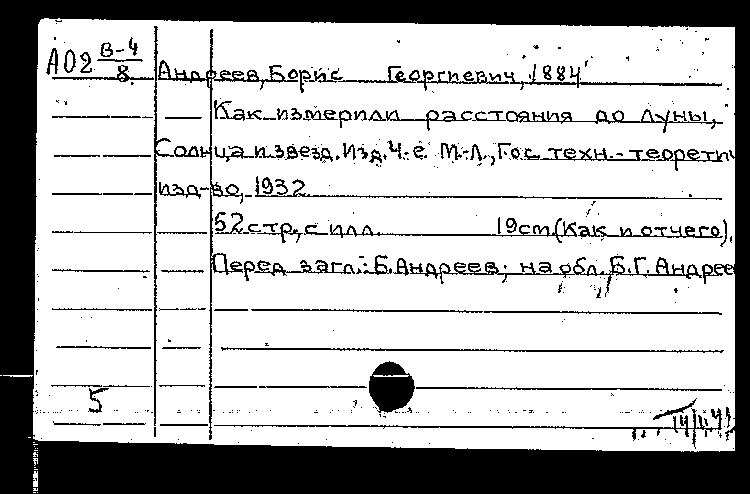 А02 В-4/8
Андреев, Борис Георгиевич, 1884
Как измерили расстояния до Луны,
Солнца и звезд. Изд. 4-е М.-Л., Гос. техн.-теорети
изд-во, 1932
52 стр., с илл. 19cm (Как и отчего).
Перед загл.: Б. Андреев; на обл. Б.Г. Андрее
5